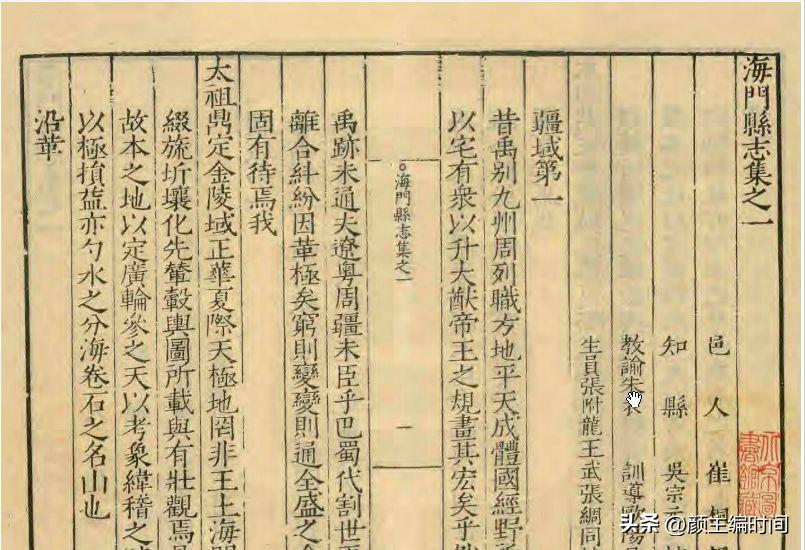 海門縣志集之一
邑人崔桐
知縣吳宗元
教諭朱衣 訓導歐陽
生員張附龍王武張綢同
疆域第一
昔禹别九州周列職方地平天成體國經野
以宅有衆以升大猷帝王之規畫其宏矣乎
海門縣志集之一
一
禹跡未通夫遼粤周疆未臣乎巴蜀代割世
離合糾紛因革極矣窮則變變則通全盛之
固有待焉我
太祖鼎定金陵域正華夏際天極地罔非王土海門
綴旒圻壤化先輦轂輿圖所載與有壯觀焉
故本之地以定廣輪參之天以考象緯稽之
以極損益亦勺水之分海卷石之名山也
沿革
头条 @颜主编时间